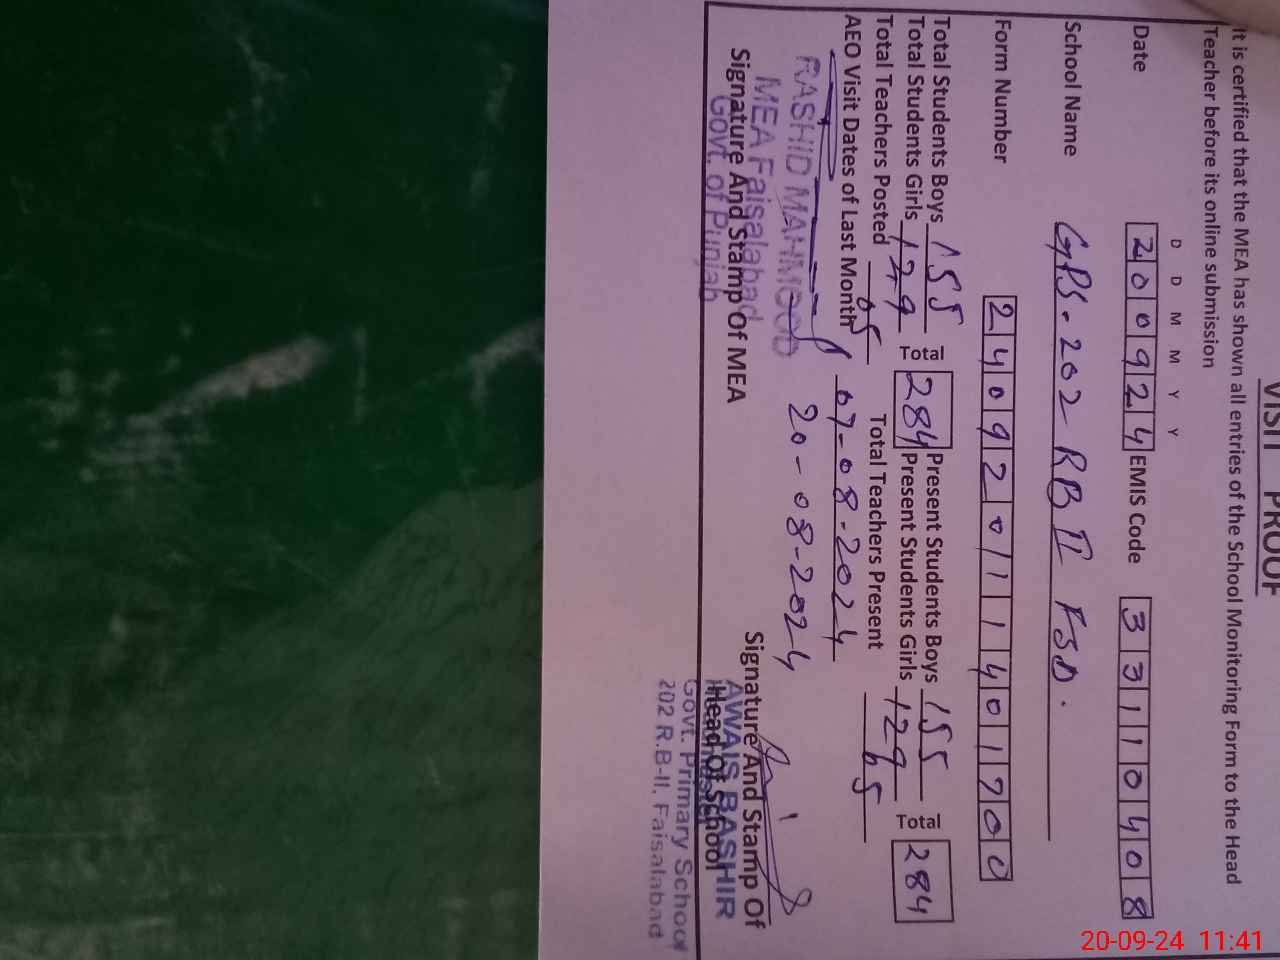 VISIT PROOF
It is certified that the MEA has shown all entries of the School Monitoring Form to the Head
Teacher before its online submission
D D M M Y Y
Date 200924 EMIS Code 33110408
School Name GPS. 202 RB II FSD.
Form Number 240920111401700
Total Students Boys 155 Total 284 Present Students Boys 155 Total 284
Total Students Girls 129 Present Students Girls 129
Total Teachers Posted 05 Total Teachers Present 05
AEO Visit Dates of Last Month 07-08-2024
20-08-2024
RASHID MAHMOOD
MEA Faisalabad
Govt. of Punjab
Signature And Stamp Of MEA
Signature And Stamp Of
Head Of School
AWAIS BASHIR
Govt. Primary School
202 R.B-II, Faisalabad
20-09-24 11:41